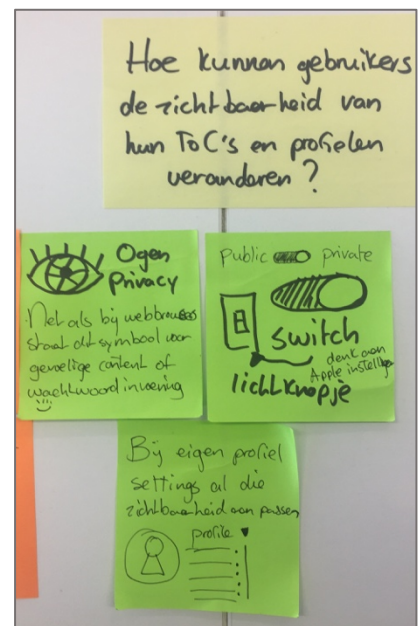 Hoe kunnen gebruikers
de zichtbaarheid van
hun ToC's en profielen
veranderen?
Ogen
Privacy
Net als bij webbrowsers
staat dit symbool voor
gevoelige content of
wachtwoord invoering
public private
switch
denk aan
Apple instelling
lichtknopje
Bij eigen profiel
settings al die
zichtbaarheid aan passen
profile